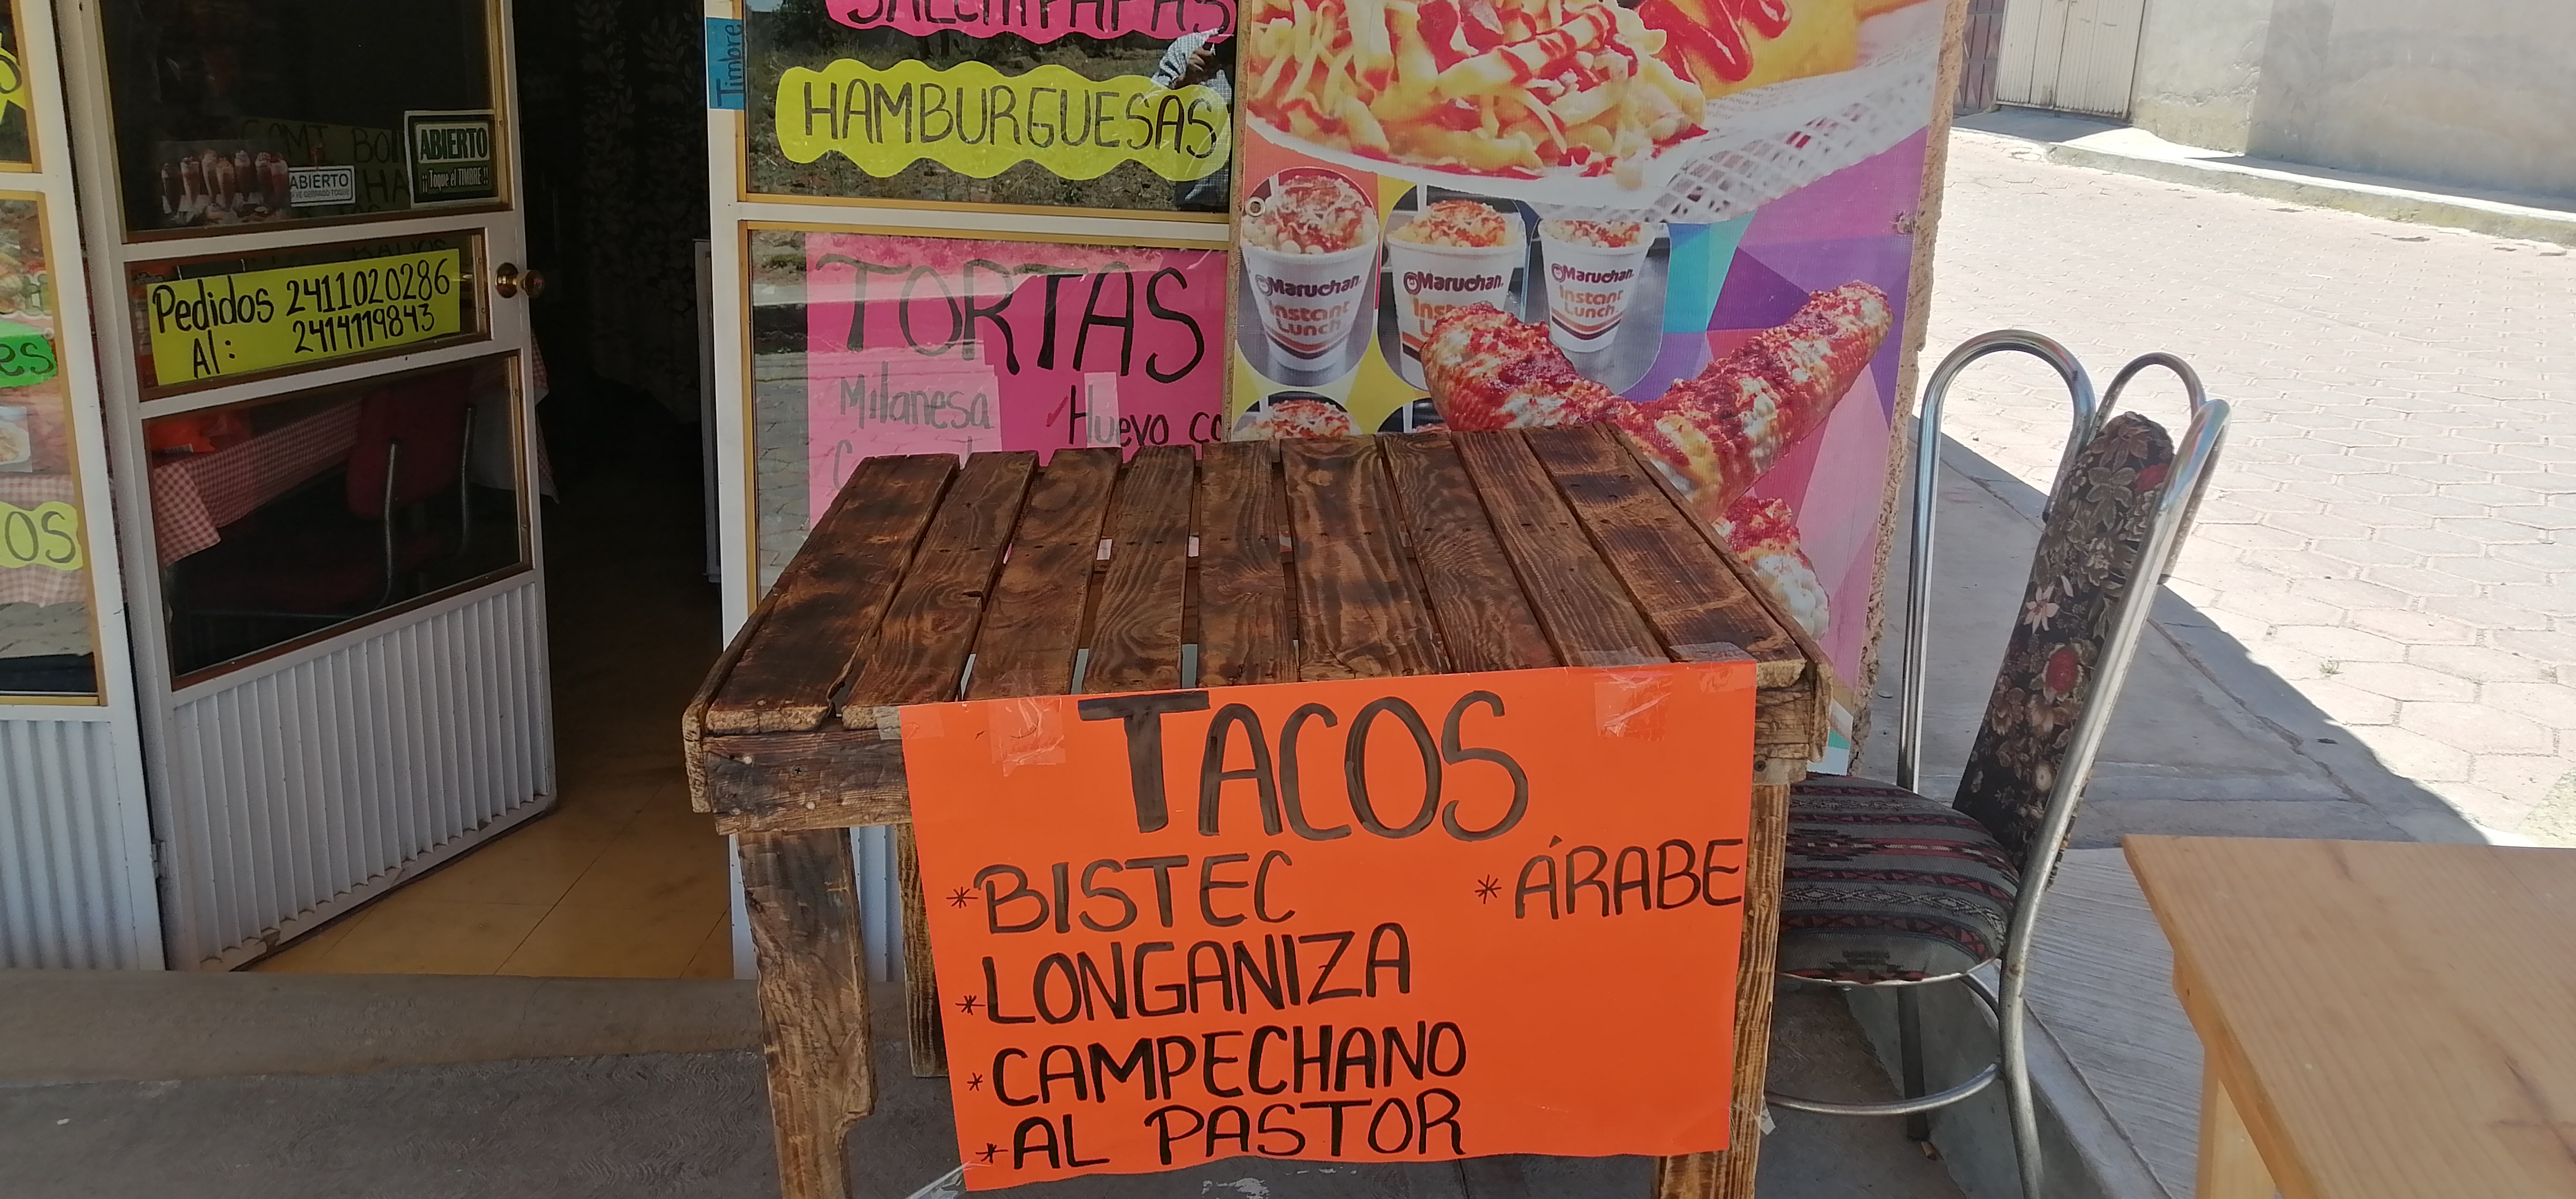 SALCHIPAPAS
Timbre
HAMBURGUESAS
ABIERTO
¡¡Toque el TIMBRE!!
ABIERTO
Pedidos 2411020286
Al: 2414119843
TORTAS
Milanesa
Huevo co
Maruchan
Instant
Lunch
Maruchan
Inst
L
Maruchan
Instant
Lunch
es
OS
TACOS
*BISTEC
*ÁRABE
*LONGANIZA
*CAMPECHANO
*AL PASTOR